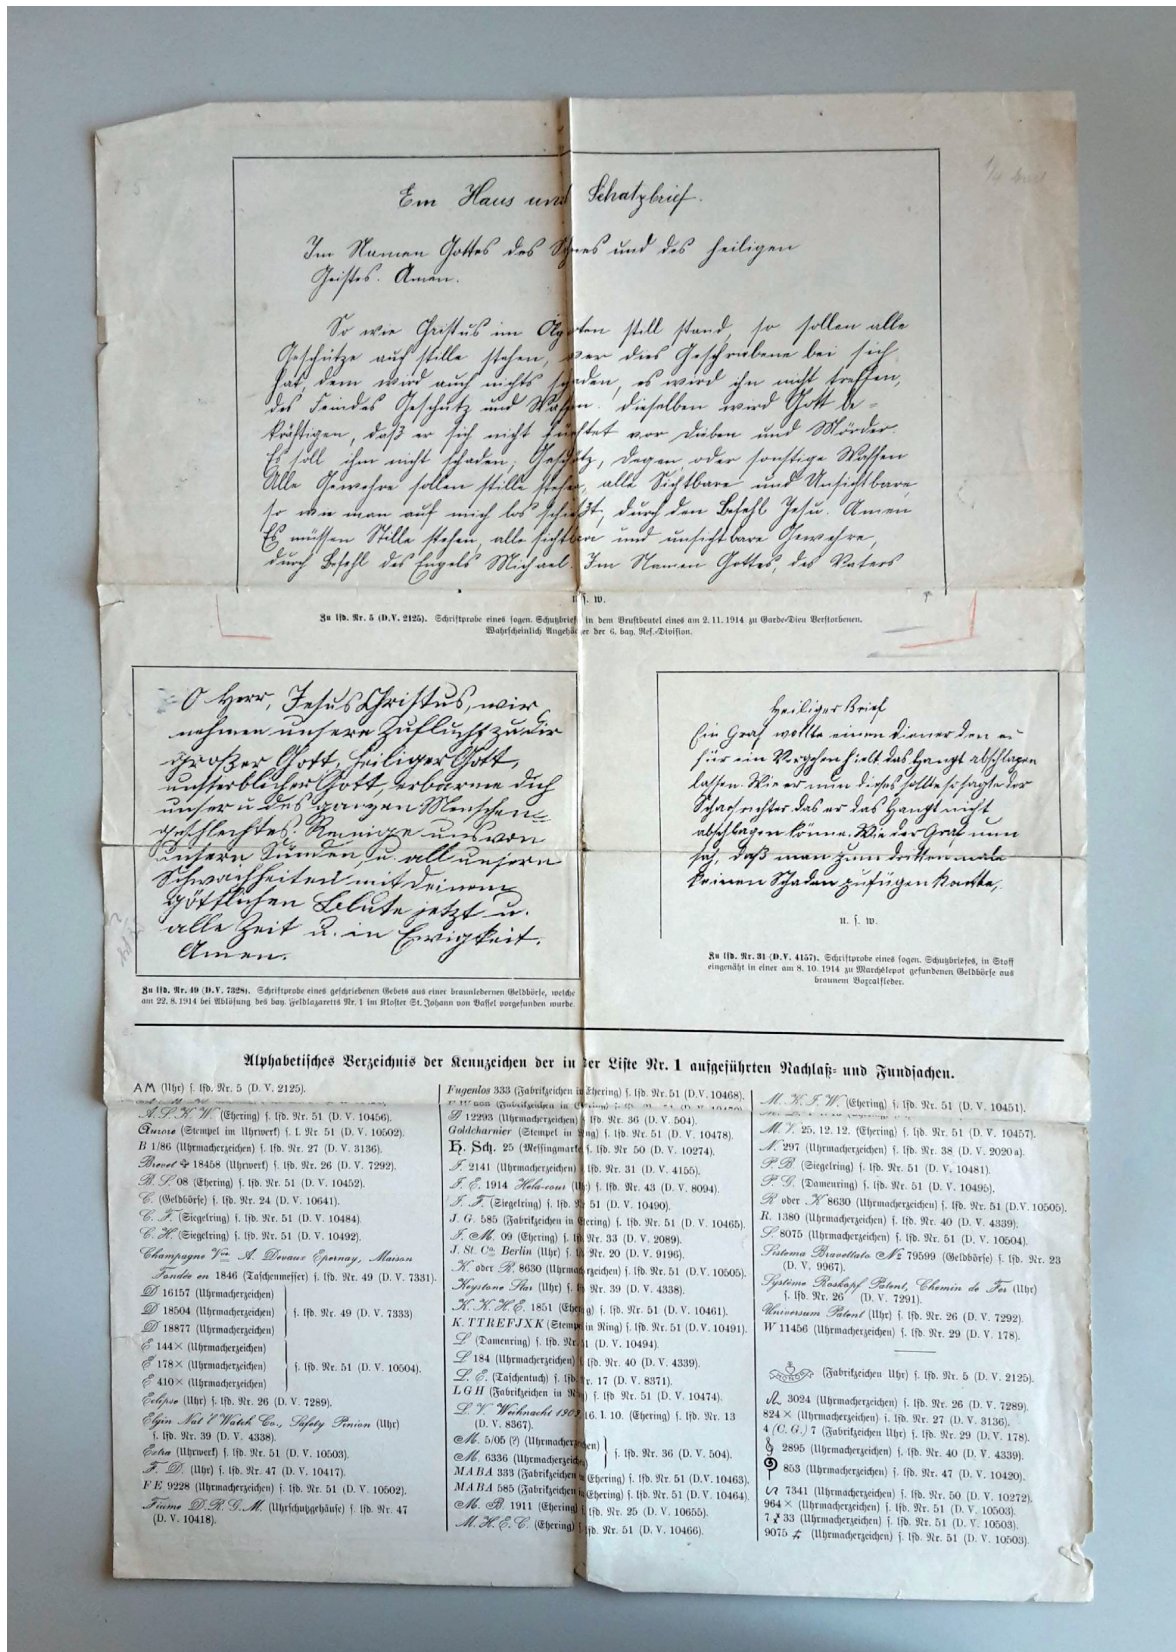 Ein Haus und Schatzbrief.
Im Namen Gottes des Sohnes und des heiligen
Geistes. Amen.
So wie Christus im Ölgarten still stand, so sollen alle
Geschütze auch stille stehen, wer dies Geschriebene bei sich
hat, dem wird auch nichts schaden, es wird ihn nicht treffen,
des Feindes Geschütz und Waffen. dieselben wird Gott be-
kräftigen, daß er sich nicht fürchtet vor Dieben und Mörder.
Es soll ihm nicht schaden; Geschütz, Degen oder sonstige Waffen
Alle Gewehre sollen stille stehen, alle Sichtbare und Unsichtbare
so wie man auf mich los schießt, durch den Befehl Jesu. Amen
Es müssen Stille stehen, alle sichtbare und unsichtbare Gewehre,
durch Befehl des Engels Michael. Im Namen Gottes, des Vaters
u. s. w.
Zu lfd. Nr. 5 (D.V. 2125). Schriftprobe eines sogen. Schutzbriefes in dem Brustbeutel eines am 2. 11. 1914 zu Garde-Dieu Verstorbenen.
Wahrscheinlich Angehöriger der 6. bay. Res.-Division.
O Herr, Jesus Christus, wir
nehmen unsere Zuflucht zu dir
großer Gott, heiliger Gott,
unsterblicher Gott, erbarme dich
unser u. des ganzen Menschen=
geschlechtes. Reinige uns von
unsern Sünden, u. all unsern
Schwachheiten mit deinem
göttlichen Blute jetzt u.
alle Zeit u. in Ewigkeit.
Amen.
Zu lfd. Nr. 49 (D.V. 7328). Schriftprobe eines geschriebenen Gebets aus einer braunledernen Geldbörse, welche
am 22. 8. 1914 bei Ablösung des bay. Feldlazaretts Nr. 1 im Kloster St. Johann von Bassel vorgefunden wurde.
Heiliger Brief
Ein Graf wollte einen diener den er
für ein Vergehen hielt das Haupt abschlagen
lassen. Wie er nun dieses sollte so sagte der
Scharfrichter das er das Haupt nicht
abschlagen könne. Wie der Graf nun
sah, daß man zum dritten male
keinen Schaden zufügen konnte,
u. s. w.
Zu lfd. Nr. 31 (D.V. 4157). Schriftprobe eines sogen. Schutzbriefes, in Stoff
eingenäht in einer am 8. 10. 1914 zu Marchslepot gefundenen Geldbörse aus
braunem Boxcalfleder.
Alphabetisches Verzeichnis der Kennzeichen der in der Liste Nr. 1 aufgeführten Nachlaß- und Fundsachen.
AM (Uhr) s. lfd. Nr. 5 (D. V. 2125).
A. L. K. W. (Ehering) s. lfd. Nr. 51 (D. V. 10456).
Aurore (Stempel im Uhrwerk) s. l. Nr. 51 (D. V. 10502).
B 1/86 (Uhrmacherzeichen) s. lfd. Nr. 27 (D. V. 3136).
Brevet 18458 (Uhrwerk) s. lfd. Nr. 26 (D. V. 7292).
B. L. 08 (Ehering) s. lfd. Nr. 51 (D. V. 10452).
C. (Geldbörse) s. lfd. Nr. 24 (D. V. 10641).
C. F. (Siegelring) s. lfd. Nr. 51 (D. V. 10484).
C. H. (Siegelring) s. lfd. Nr. 51 (D. V. 10492).
Champagne Vve A. Devaux Epernay, Maison
Fondée en 1846 (Taschenmesser) s. lfd. Nr. 49 (D. V. 7331).
D 16157 (Uhrmacherzeichen)
D 18504 (Uhrmacherzeichen) s. lfd. Nr. 49 (D. V. 7333)
D 18877 (Uhrmacherzeichen)
E 144× (Uhrmacherzeichen)
E 178× (Uhrmacherzeichen) s. lfd. Nr. 51 (D. V. 10504).
E 410× (Uhrmacherzeichen)
Eclipse (Uhr) s. lfd. Nr. 26 (D. V. 7289).
Elgin Nat'l Watch Co., Safety Pinion (Uhr)
s. lfd. Nr. 39 (D. V. 4338).
Extra (Uhrwerk) s. lfd. Nr. 51 (D. V. 10503).
F. D. (Uhr) s. lfd. Nr. 47 (D. V. 10417).
FE 9228 (Uhrmacherzeichen) s. lfd. Nr. 51 (D. V. 10502).
Fiume D. R. G. M. (Uhrschutzgehäuse) s. lfd. Nr. 47
(D. V. 10418).
Fugenlos 333 (Fabrikzeichen in Ehering) s. lfd. Nr. 51 (D. V. 10468).
G 12293 (Uhrmacherzeichen) s. lfd. Nr. 36 (D. V. 504).
Goldcharnier (Stempel in Ring) s. lfd. Nr. 51 (D. V. 10478).
H. Sch. 25 (Messingmarke) s. lfd. Nr 50 (D. V. 10274).
J. 2141 (Uhrmacherzeichen) s. lfd. Nr. 31 (D. V. 4155).
J. E. 1914 (Uhr) s. lfd. Nr. 43 (D. V. 8094).
J. F. (Siegelring) s. lfd. Nr. 51 (D. V. 10490).
J. G. 585 (Fabrikzeichen in Ehering) s. lfd. Nr. 51 (D. V. 10465).
J. M. 09 (Ehering) s. lfd. Nr. 33 (D. V. 2089).
J. St. Co. Berlin (Uhr) s. lfd. Nr. 20 (D. V. 9196).
K. oder R. 8630 (Uhrmacherzeichen) s. lfd. Nr. 51 (D. V. 10505).
Keystone Star (Uhr) s. lfd. Nr. 39 (D. V. 4338).
K. K. H. E. 1851 (Ehering) s. lfd. Nr. 51 (D. V. 10461).
K. TTREFJXK (Stempel in Ring) s. lfd. Nr. 51 (D. V. 10491).
L. (Damenring) s. lfd. Nr. 51 (D. V. 10494).
L 184 (Uhrmacherzeichen) s. lfd. Nr. 40 (D. V. 4339).
L. E. (Taschentuch) s. lfd. Nr. 17 (D. V. 8371).
LGH (Fabrikzeichen in Ring) s. lfd. Nr. 51 (D. V. 10474).
L. V. Weihnacht 1909, 16. 1. 10. (Ehering) s. lfd. Nr. 13
(D. V. 8367).
M. 5/05 (?) (Uhrmacherzeichen)
M. 6336 (Uhrmacherzeichen) s. lfd. Nr. 36 (D. V. 504).
MABA 333 (Fabrikzeichen in Ehering) s. lfd. Nr. 51 (D. V. 10463).
MABA 585 (Fabrikzeichen in Ehering) s. lfd. Nr. 51 (D. V. 10464).
M. B. 1911 (Ehering) s. lfd. Nr. 25 (D. V. 10655).
M. H. E. C. (Ehering) s. lfd. Nr. 51 (D. V. 10466).
M. K. J. W. (Ehering) s. lfd. Nr. 51 (D. V. 10451).
M. V. 25. 12. 12. (Ehering) s. lfd. Nr. 51 (D. V. 10457).
N. 297 (Uhrmacherzeichen) s. lfd. Nr. 38 (D. V. 2020a).
P. B. (Siegelring) s. lfd. Nr. 51 (D. V. 10481).
P. G. (Damenring) s. lfd. Nr. 51 (D. V. 10495).
R oder K 8630 (Uhrmacherzeichen) s. lfd. Nr. 51 (D. V. 10505).
R. 1380 (Uhrmacherzeichen) s. lfd. Nr. 40 (D. V. 4339).
S. 8075 (Uhrmacherzeichen) s. lfd. Nr. 51 (D. V. 10504).
Sistema Bravettato No 79599 (Geldbörse) s. lfd. Nr. 23
(D. V. 9967).
Système Roskopf Patent, Chemin de Fer (Uhr)
s. lfd. Nr. 26 (D. V. 7291).
Universum Patent (Uhr) s. lfd. Nr. 26 (D. V. 7292).
W 11456 (Uhrmacherzeichen) s. lfd. Nr. 29 (D. V. 178).
(Fabrikzeichen Uhr) s. lfd. Nr. 5 (D. V. 2125).
3024 (Uhrmacherzeichen) s. lfd. Nr. 26 (D. V. 7289).
824 × (Uhrmacherzeichen) s. lfd. Nr. 27 (D. V. 3136).
4 (C. G.) 7 (Fabrikzeichen Uhr) s. lfd. Nr. 29 (D. V. 178).
2895 (Uhrmacherzeichen) s. lfd. Nr. 40 (D. V. 4339).
853 (Uhrmacherzeichen) s. lfd. Nr. 47 (D. V. 10420).
7341 (Uhrmacherzeichen) s. lfd. Nr. 50 (D. V. 10272).
964 × (Uhrmacherzeichen) s. lfd. Nr. 51 (D. V. 10503).
7 x 33 (Uhrmacherzeichen) s. lfd. Nr. 51 (D. V. 10503).
9075 (Uhrmacherzeichen) s. lfd. Nr. 51 (D. V. 10503).